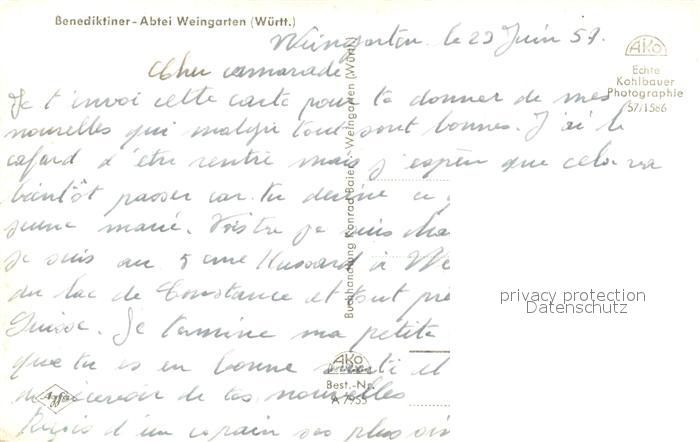 Benediktiner-Abtei Weingarten (Württ.)
Weingarten le 29 Juin 57.
Cher camarade
Je t'envoi cette carte pour te donner de mes
nouelles qui malgré tout sont bonnes. J'ai le
cafard d'être rentré mais j'espère que cela va
bientôt passer car tu devine
jeune marié. je suis
je suis au 5 eme Hussard à We
du lac de Constance et tout prè
Suisse. Je termine ma petite
que tu es en bonne santé et
recevoir de tes nouvelles
Reçois d'un copain ses plus
AKO
Echte
Kohlbauer
Photographie
57/1586
Buchhandlung Konrad Baier - Weingarten (Württ)
AKO
Best.-Nr.
A 7955
Agfa
privacy protection
Datenschutz